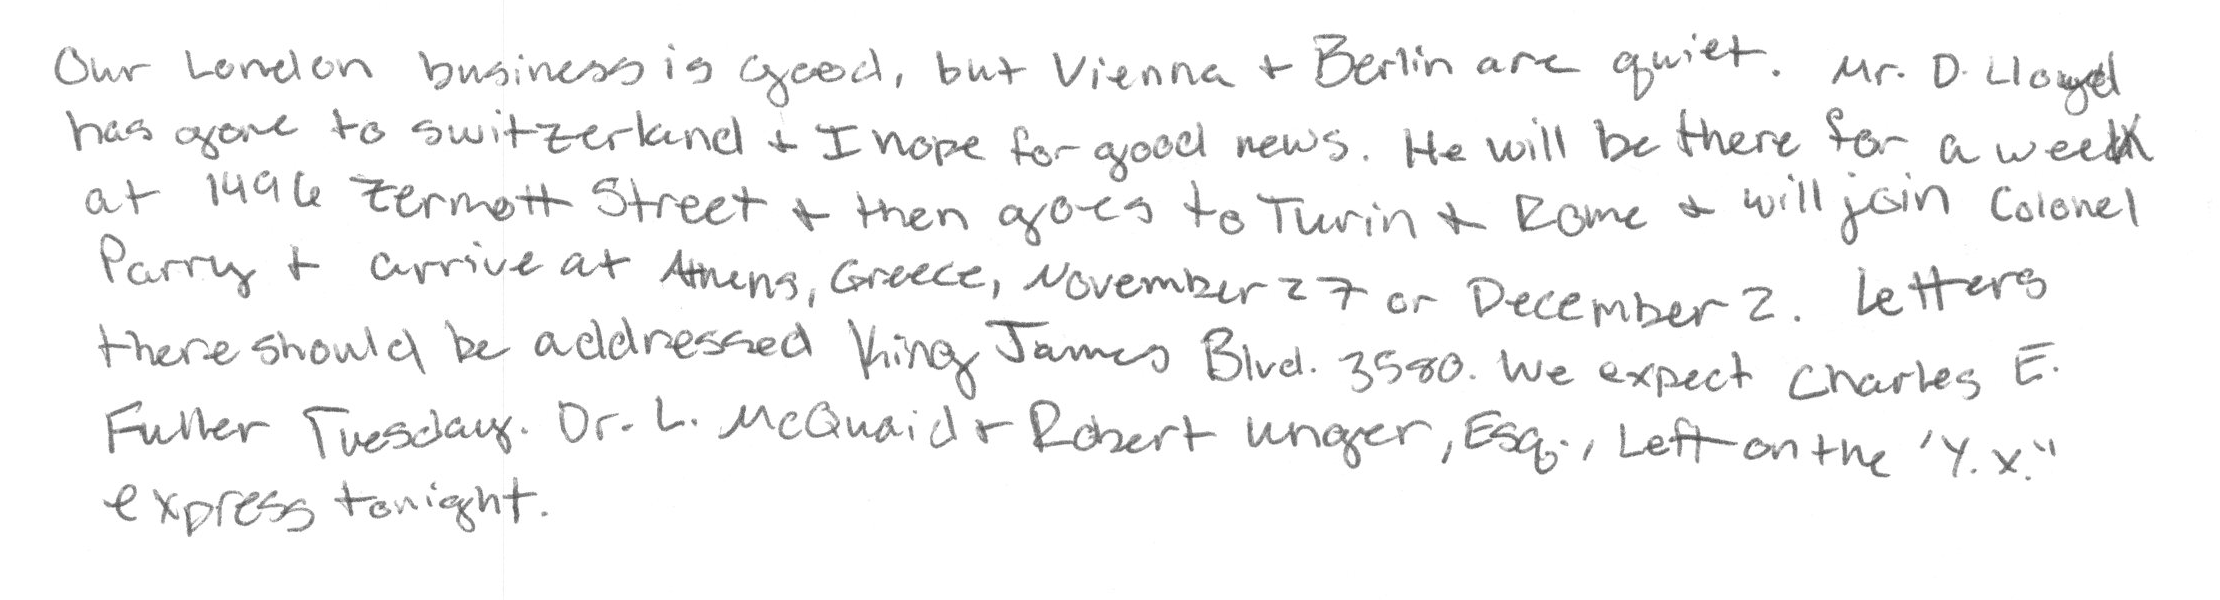 Our London business is good, but Vienna + Berlin are quiet. Mr. D. Lloyd
has gone to Switzerland + I hope for good news. He will be there for a week
at 1496 Zermott Street + then goes to Turin + Rome + will join Colonel
Parry + arrive at Athens, Greece, November 27 or December 2. Letters
there should be addressed King James Blvd. 3580. We expect Charles E.
Fuller Tuesday. Dr. L. McQuaid + Robert Unger, Esq., Left on the "Y.X."
express tonight.